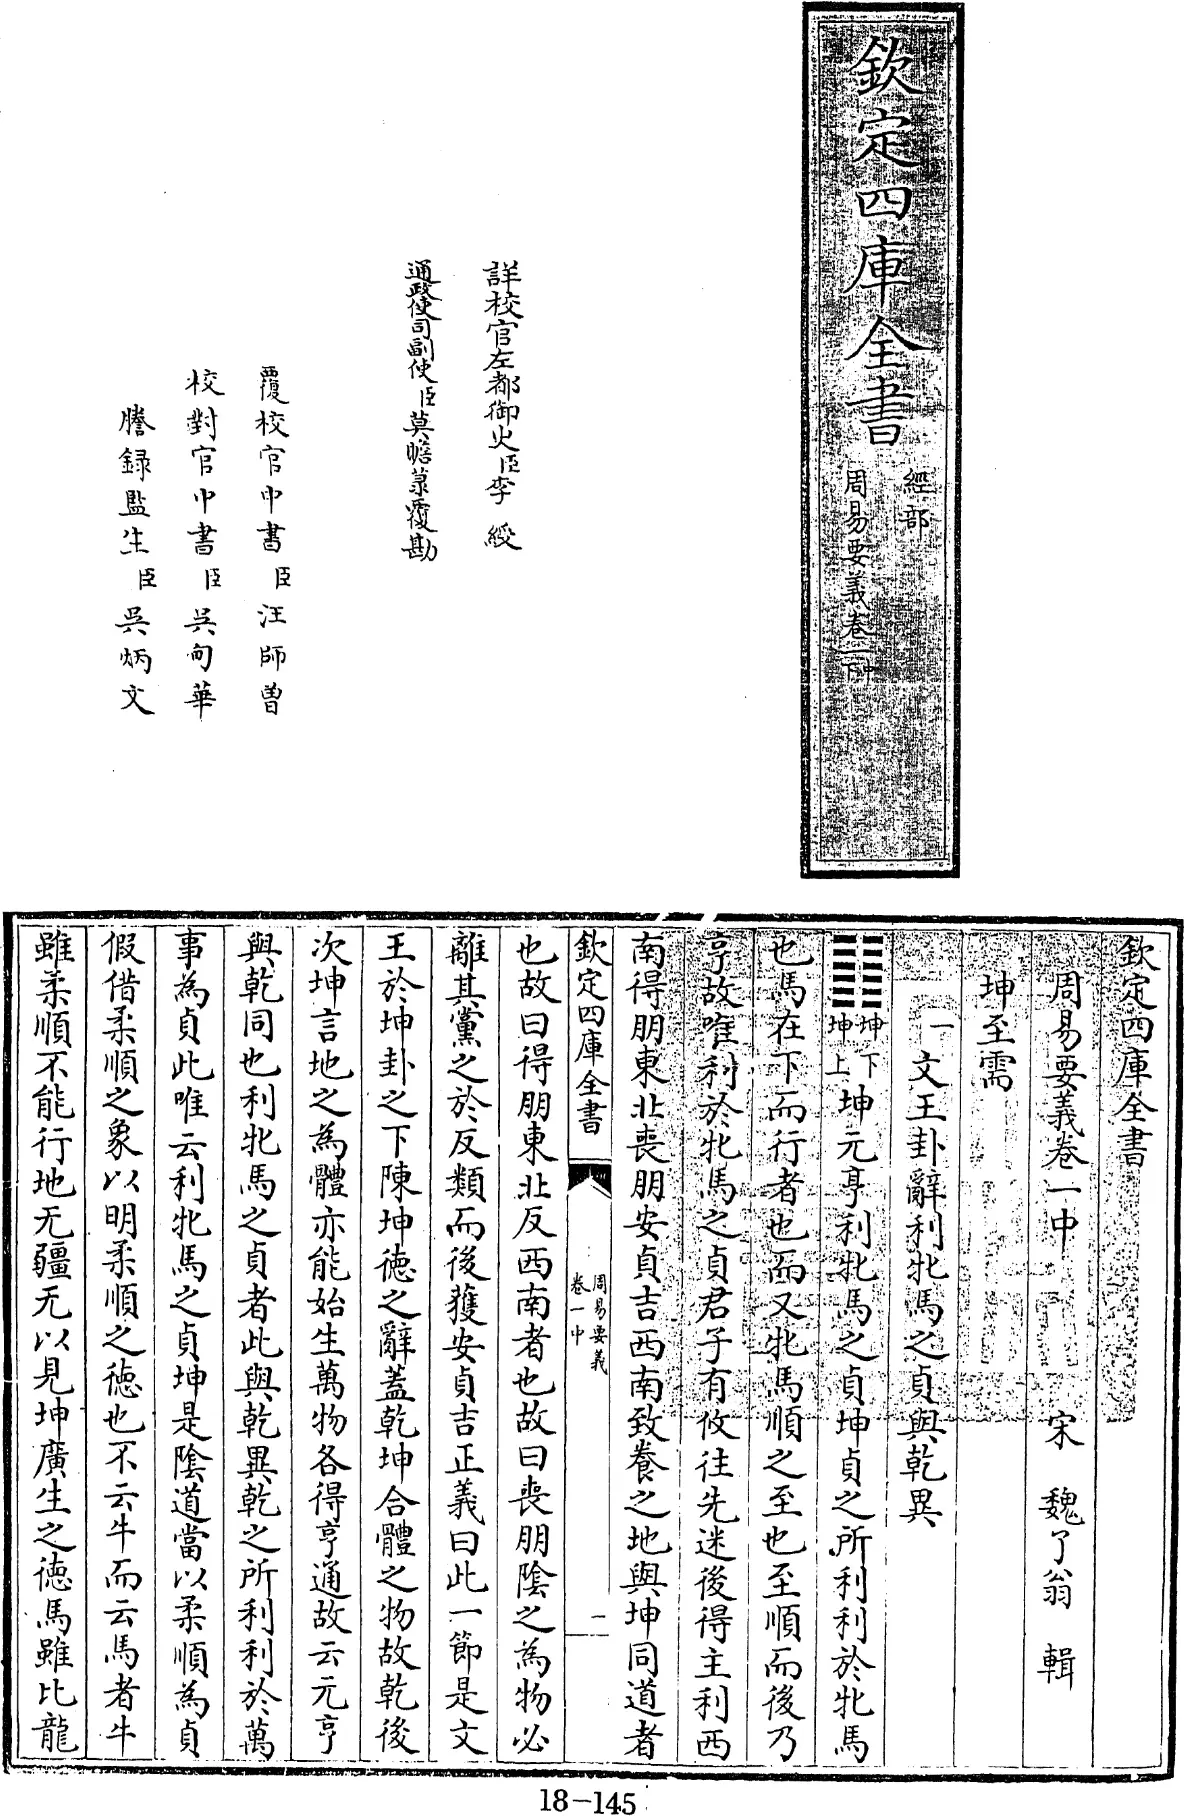 欽定四庫全書
經部
周易要義卷一中下
詳校官左都御史臣李綬
通政使司副使臣莫瞻菉覆勘
覆校官中書臣汪師曽
校對官中書臣吳甸華
謄録監生臣吳炳文
欽定四庫全書
周易要義卷一中 宋 魏了翁 輯
坤至需
一 文王卦辭利牝馬之貞與乾異
坤下坤上 坤元亨利牝馬之貞坤貞之所利利於牝馬
也馬在下而行者也而又牝馬順之至也至順而後乃
亨故唯利於牝馬之貞君子有攸往先迷後得主利西
南得朋東北喪朋安貞吉西南致養之地與坤同道者
欽定四庫全書
周易要義
卷一中
一
也故曰得朋東北反西南者也故曰喪朋陰之為物必
離其黨之於反類而後獲安貞吉正義曰此一節是文
王於坤卦之下陳坤德之辭蓋乾坤合體之物故乾後
次坤言地之為體亦能始生萬物各得亨通故云元亨
與乾同也利牝馬之貞者此與乾異乾之所利利於萬
事為貞此唯云利牝馬之貞坤是陰道當以柔順為貞
假借柔順之象以明柔順之德也不云牛而云馬者牛
雖柔順不能行地无疆无以見坤廣生之德馬雖比龍
18-145